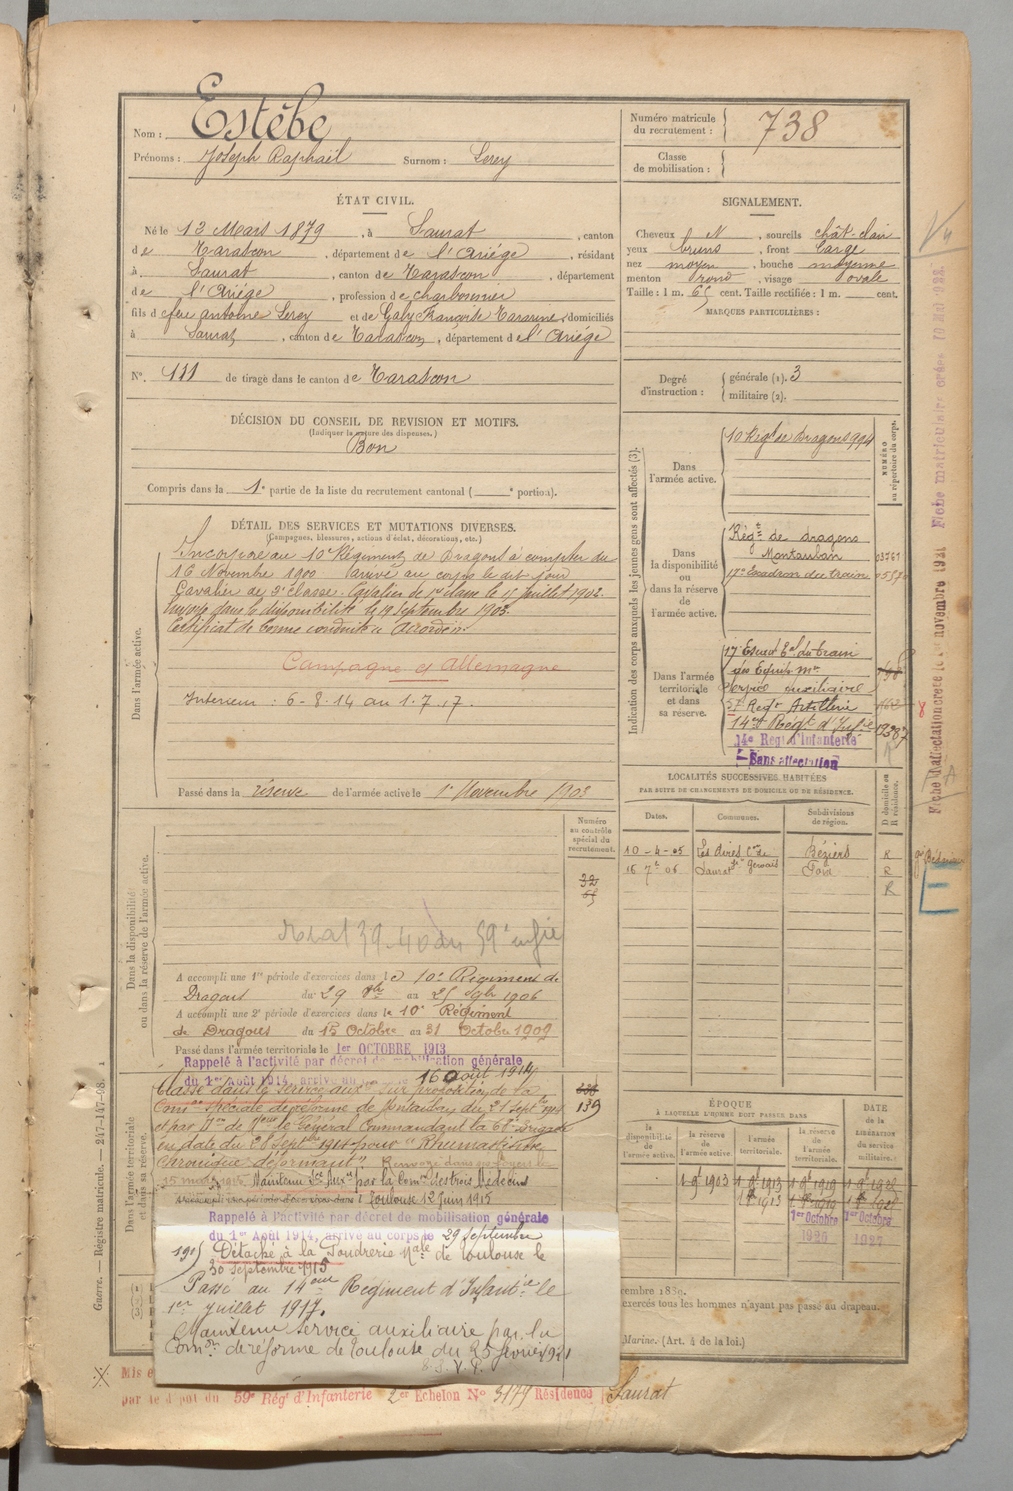 Nom : Estèbe
Prénoms : Joseph Raphaël Surnom : Lerey
Numéro matricule du recrutement : 738
Classe de mobilisation :
ÉTAT CIVIL.
Né le 13 Mars 1879, à Saurat, canton
de Tarascon, département de l'Ariége, résidant
à Saurat, canton de Tarascon, département
de l'Ariége, profession de charbonnier
fils d feu antoine Lerey et de Galy Françoise, domiciliés
à Saurat, canton de Tarascon, département de l'Ariége
N°. 111 de tirage dans le canton de Tarascon
SIGNALEMENT.
Cheveux N, sourcils chât clair
yeux bruns, front large
nez moyen, bouche moyenne
menton rond, visage ovale
Taille : 1 m. 65 cent. Taille rectifiée : 1 m. cent.
MARQUES PARTICULIÈRES :
Degré d'instruction : générale (1). 3
militaire (2).
DÉCISION DU CONSEIL DE REVISION ET MOTIFS.
(Indiquer la nature des dispenses.)
Bon
Compris dans la 1e partie de la liste du recrutement cantonal ( e portion).
DÉTAIL DES SERVICES ET MUTATIONS DIVERSES.
(Campagnes, blessures, actions d'éclat, décorations, etc.)
Dans l'armée active.
Incorporé au 10e Régiment de Dragons à compter du
16 Novembre 1900 arrivé au corps le dit jour
Cavalier de 2e classe. Cavalier de 1re classe le 15 Juillet 1902.
Envoyé dans la disponibilité le 19 Septembre 1903.
Certificat de bonne conduite accordé.
Campagne c/ Allemagne
Interieur : 6-8-14 au 1.7.17.
Passé dans la réserve de l'armée active le 1er Novembre 1903
Indication des corps auxquels les jeunes gens sont affectés (3).
NUMÉRO au répertoire du corps.
Dans l'armée active.
10 Régt de Dragons 994
Dans la disponibilité ou dans la réserve de l'armée active.
Régt de dragons
Montauban 03761
17e Escadron du train
Dans l'armée territoriale et dans sa réserve.
17 Escad Eal du Train
des Equip. mres
Service auxiliaire
57 Régt Artillerie
14me Régt d'Infie
14e Régt d'Infanterie
Sans affectation
LOCALITÉS SUCCESSIVES HABITÉES
PAR SUITE DE CHANGEMENTS DE DOMICILE OU DE RÉSIDENCE.
Dates. Communes. Subdivisions de région. D domicile ou R résidence.
10-4-05 Les Aires Cne de St Gervais Béziers R
16 7e 06 Saurat Foix R
R
Dans la disponibilité ou dans la réserve de l'armée active.
Numéro au contrôle spécial du recrutement.
32
A accompli une 1re période d'exercices dans le 10e Régiment de
Dragons du 29 au 25 1906
A accompli une 2e période d'exercices dans le 10e Régiment
de Dragons du 15 Octobre au 31 Octobre 1909
Passé dans l'armée territoriale le 1er OCTOBRE 1913
Dans l'armée territoriale et dans sa réserve.
Rappelé à l'activité par décret de mobilisation générale
du 1er Août 1914, arrivé au 16 août 1914
Classé dans le service auxre sur proposition de la
Comon spéciale de réforme de Montauban du 21 Septbre 1914
et par Don de Mr le Général Commandant la 68e Brigade
en date du 28 Septbre 1914 pour "Rhumatisme
Chronique déformant" Renvoyé dans ses foyers le
15 mars 1915 Maintenu Sce Auxre par la Comon des trois Médecins
Toulouse 12 Juin 1915
139
Rappelé à l'activité par décret de mobilisation générale
du 1er Août 1914, arrivé au corps le 29 Septembre
1915 Détaché à la Poudrerie Nale de Toulouse le
30 septembre 1915
Passé au 14eme Régiment d'Infantie le
1er Juillet 1917.
Maintenu service auxiliaire par la
Comon de réforme de Toulouse du 25 février 1921
T. S. V. P.
ÉPOQUE
À LAQUELLE L'HOMME DOIT PASSER DANS
la disponibilité de l'armée active. la réserve de l'armée active. l'armée territoriale. la réserve de l'armée territoriale.
DATE DE LA LIBÉRATION DU SERVICE MILITAIRE.
1 9bre 1903 1 9bre 1913 1 9bre 1919
1er Octobre 1er Octobre
1926 1927
cembre 1889.
exercés tous les hommes n'ayant pas passé au drapeau.
Marine. (Art. 4 de la loi.)
Mis e
59e Rég' d'Infanterie 2er Echelon N° 3179 Résidence Saurat
Guerre. — Régistre matricule. — 247-147-98.
Vu
Fiche matriculaire créée 10 Mai 1922.